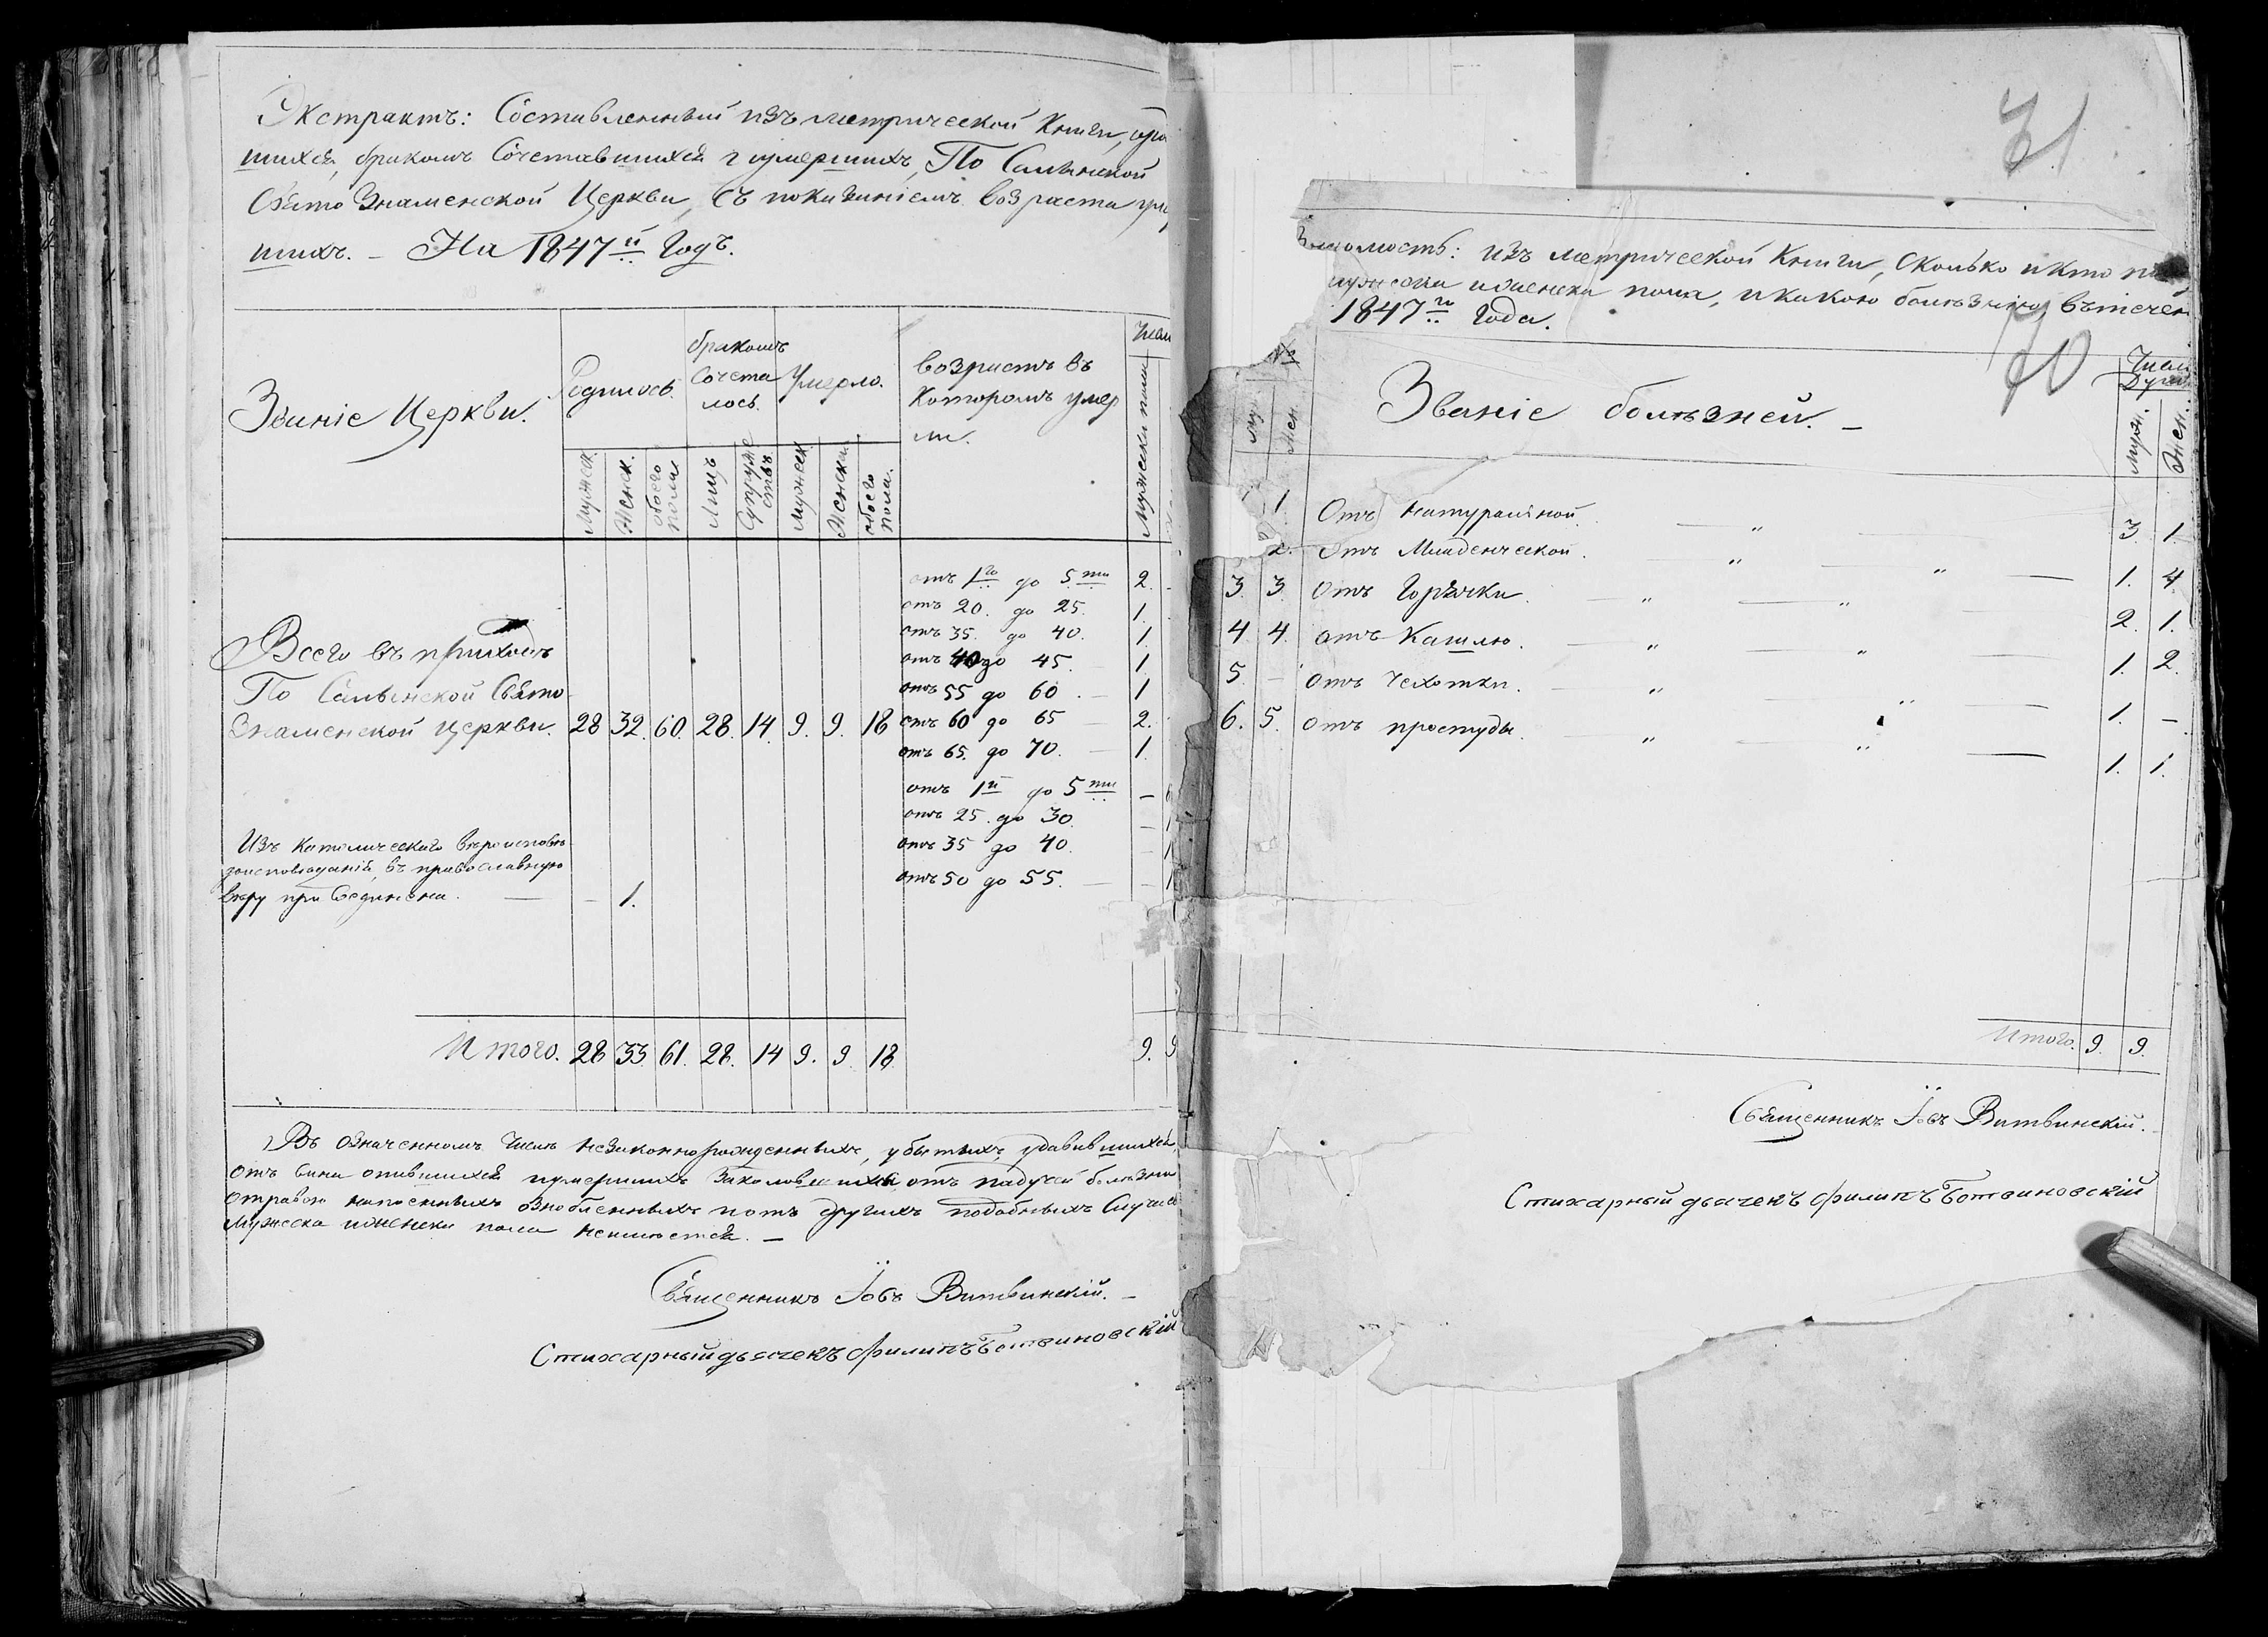 Экстрактъ: Составленный изъ метрической Книги,
шихся, бракомъ Сочетавшихся и умершихъ, По Сальнской
Свято Знаменской Церкви, Съ показаніемъ возраста уме
шихъ. – На 1847й Годъ.
Званіе Церкви.
Родилось.
бракомъ
Сочета
лось.
Умерло.
возрастъ въ
Которомъ умер
ли.
Числ
Мужеск.
Женск.
обоего
пола
Лицъ
Супруже
ствъ
Мужеск.
Женска.
обоего
пола.
Мужеска пола
Всего въ приходѣ
По Сальнской Свято
Знаменской церкви. 28 32. 60. 28. 14. 9. 9. 18
отъ 1го до 5ти 2.
отъ 20. до 25. 1.
отъ 35. до 40. 1.
отъ 40 до 45. 1
отъ 55 до 60. – 1
отъ 60 до 65 – 2.
отъ 65. до 70. – 1.
отъ 1й до 5ти – 6
отъ 25. до 30. –
отъ 35 до 40. –
отъ 50 до 55. –
Изъ Католическаго
въ православную
вѣру присоединена. – – 1.
Итого. 28 33. 61. 28. 14 9. 9 18 9. 9
Въ означенномъ Числѣ незаконнорожденныхъ, убытыхъ, удавившихся,
отъ вина опившихся и умершихъ отъ падучей болѣзни
отравою напоенныхъ ознобленныхъ и отъ другихъ подобныхъ Случае
Мужеска и женска пола неимѣется. –
Священникъ Іовъ Витвинскій. –
Стихарный дьячекъ Филипъ Ботвиновскій
31
Вѣдомость: изъ метрической Книги, Сколько и кто
мужеска и женска пола, и какою болѣзнію, втечен
1847го Года.
40
№
му.
жен.
Званіе болѣзней. –
Числ
Душ
Муж.
Жен.
1 Отъ Натуральной. – " 3 1.
2. Отъ Младенческой. " – " – 1. 4.
3. 3. Отъ Горячки. – " – " – 2. 1.
4 4. отъ Кашлю. – " – " – 1. 2.
5. – отъ Чехотки. – " – " – 1. –
6. 5. отъ простуды. – " – " – 1. 1.
Итого. 9. 9.
Священникъ Іовъ Витвинскій.
Стихарный дьячекъ Филипъ Ботвиновскій